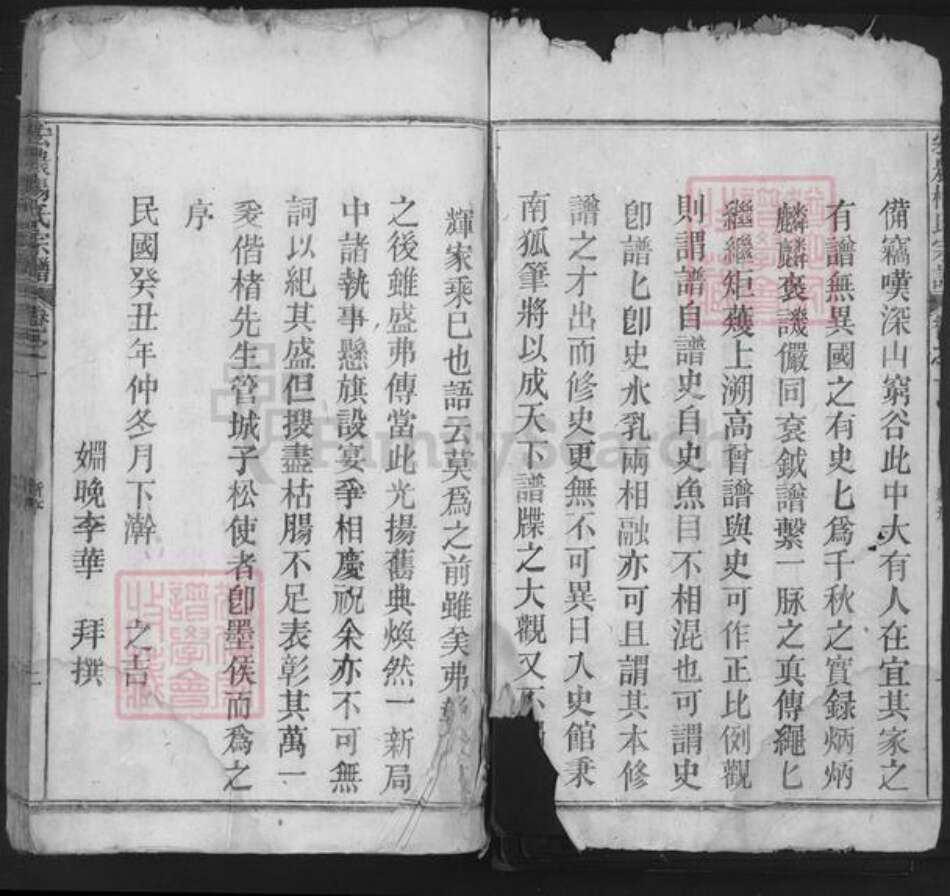 備竊嘆深山窮谷此中大有人在宜其家之
有譜無異國之有史匕為千秋之實録炳炳
麟麟褒譏儼同袞鉞譜繫一脉之真傳繩匕
繼繼矩蒦上溯高曾譜與史可作正比例觀
則謂譜自譜史自史魚目不相混也可謂史
卽譜匕卽史水乳兩相融亦可且謂其本修
譜之才出而修史更無不可異日入史館秉
南狐筆將以成天下譜牒之大觀又不
輝家乘已也語云莫爲之前雖美弗彰
之後雖盛弗傳當此光揚舊典煥然一新局
中諸執事懸旗設宴爭相慶祝余亦不可無
詞以紀其盛但搜盡枯腸不足表彰其萬一
爰偕楮先生管城子松使者卽墨侯而爲之
序
民國癸丑年仲冬月下澣 之吉
婣晚李華 拜撰
楊氏宗譜
FamilySearch
譜學會
收藏